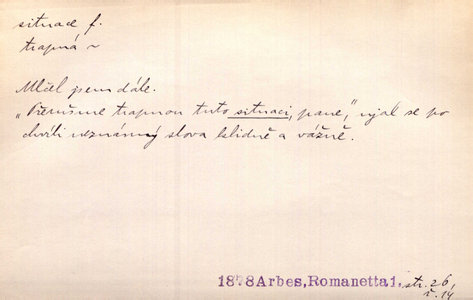 situace f.
trapná ~
Mlčel jsem dále.
„Přerušme trapnou tuto situaci, pane,“ ujal se po
chvíli neznámý slova klidně a vážně.
1878 Arbes, Romanetta 1, str. 26,
ř. 14